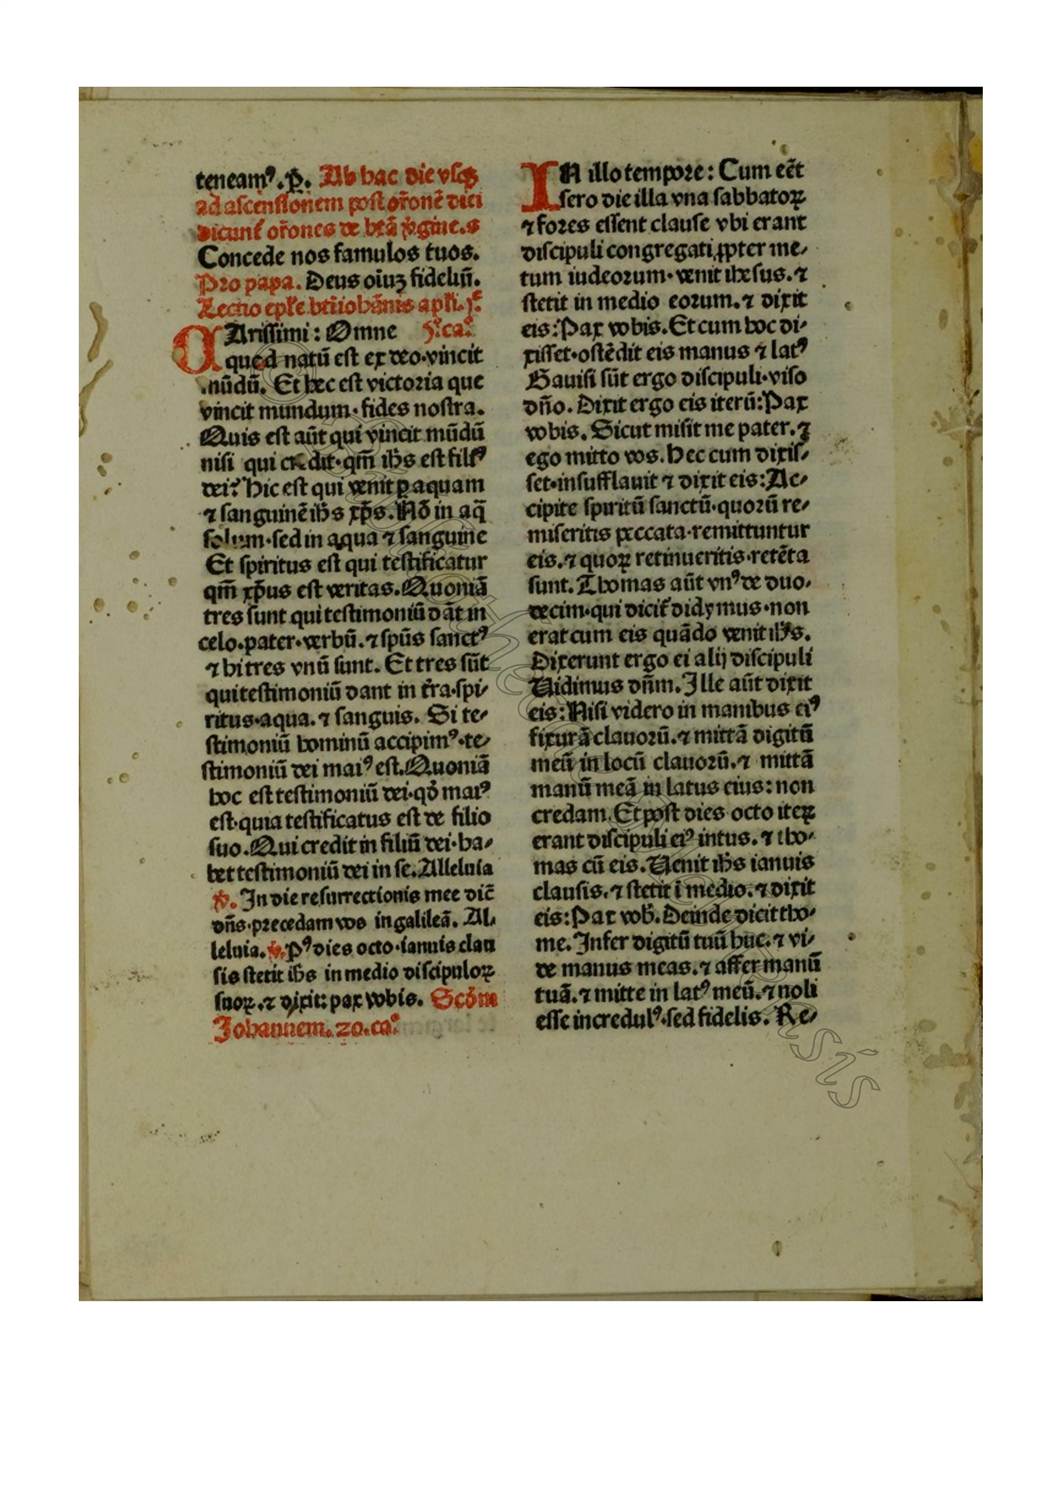 teneam⁹. p̱. Ab hac die vsq̃
ad ascensionem post or̃onẽ diei
dicunt̃ or̃ones de btã v̓gine. s
Concede nos famulos tuos.
Pro papa. Deus oĩuꝫ fideliũ.
Lectio ep̄le bt̃i iohãnis apl̃i. 5̊.
CArissimi: Omne 5.̊ ca.̊
quod natũ est ex deo·vincit
mũdũ. Et hec est victoria que
vincit mundum·fides nostra.
Quis est aũt qui vincit mũdũ
nisi qui credit·qm̃ ih̃s est fili⁹
dei? Hic est qui venit ꝑ aquam
⁊ sanguinẽ ih̃s xp̃s. Nõ in aq̃
solum·sed in aqua ⁊ sanguine
Et spiritus est qui testificatur
qm̃ xp̃us est veritas. Quoniã
tres sunt qui testimoniũ dãt in
celo. pater·verbũ. ⁊ sp̃us sanct⁹
⁊ hi tres vnũ sunt. Et tres sũt
qui testimoniũ dant in t̃ra·spi-
ritus·aqua. ⁊ sanguis. Si te-
stimoniũ hominũ accipim⁹·te-
stimoniũ dei mai⁹ est. Quoniã
hoc est testimoniũ dei·qð mai⁹
est·quia testificatus est de filio
suo. Qui credit in filiũ dei·ha-
bet testimoniũ dei in se. Alleluia
℣. In die resurrectionis mee dic̃
dñs·precedam vos in galileã. Al-
leluia. ℣. P⁹ dies octo·ianuis clau
sis stetit ih̃s in medio discipuloꝝ
suoꝝ. ⁊ dixit: pax vobis. Scðm
Johannem. 20. ca.̊
IN illo tempore: Cum eẽt
sero die illa vna sabbatoꝝ
⁊ fores essent clause vbi erant
discipuli congregati ꝓpter me-
tum iudeorum·venit ihesus. ⁊
stetit in medio eorum. ⁊ dixit
eis: Pax vobis. Et cum hoc di-
xisset·ostẽdit eis manus ⁊ lat⁹
Gauisi sũt ergo discipuli·viso
dño. Dixit ergo eis iterũ: Pax
vobis. Sicut misit me pater. ⁊
ego mitto vos. Hec cum dixis-
set·insufflauit ⁊ dixit eis: Ac-
cipite spiritũ sanctũ·quorũ re-
miseritis peccata·remittuntur
eis. ⁊ quoꝝ retinueritis·retẽta
sunt. Thomas aũt vn⁹ de duo-
decim·qui dicit̃ didymus·non
erat cum eis quãdo venit ih̃s.
Dixerunt ergo ei alij discipuli
Vidimus dñm. Ille aũt dixit
eis: Nisi videro in manibus ei⁹
fixurã clauorũ. ⁊ mittã digitũ
meũ in locũ clauorũ. ⁊ mittã
manũ meã in latus eius: non
credam. Et post dies octo iteꝝ
erant discipuli ei⁹ intus. ⁊ tho-
mas cũ eis. Venit ih̃s ianuis
clausis. ⁊ stetit ĩ medio. ⁊ dixit
eis: Pax vob̃. Deinde dicit tho-
me. Infer digitũ tuũ huc. ⁊ vi-
de manus meas. ⁊ affer manũ
tuã. ⁊ mitte in lat⁹ meũ. ⁊ noli
esse incredul⁹·sed fidelis. Re-